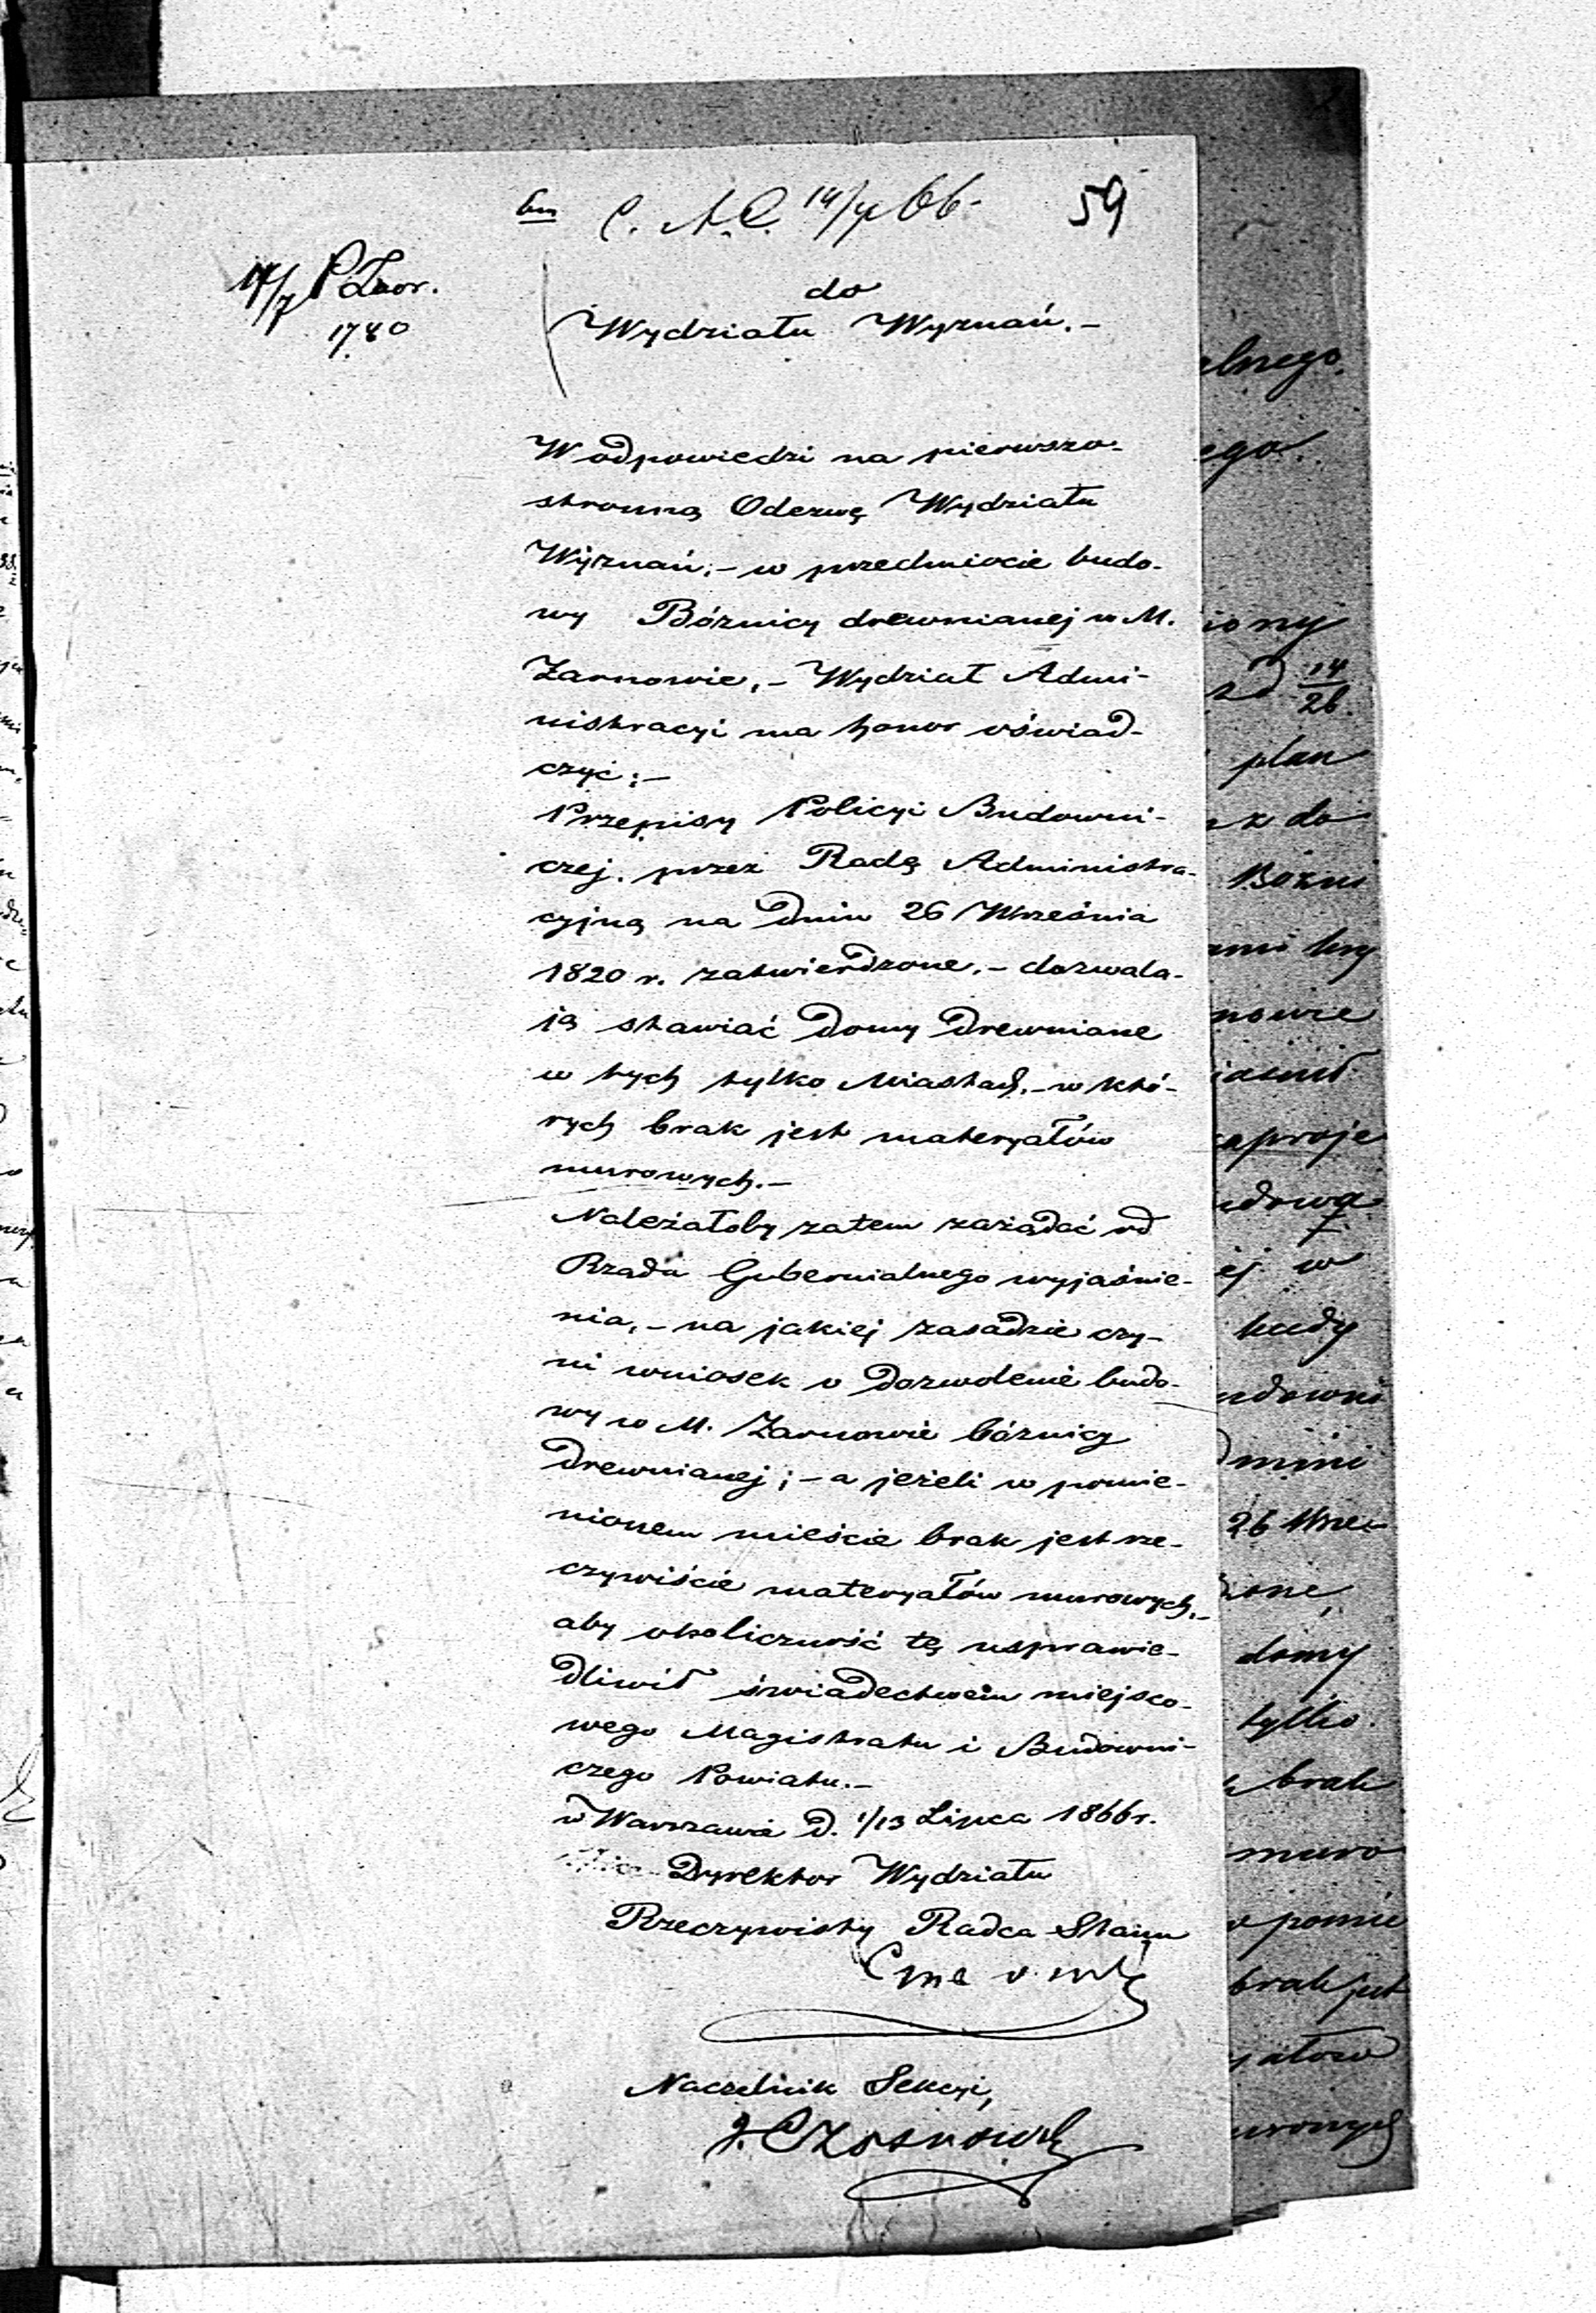 59
14/7 66.
14/7
1780
do
Wydziału Wyznań.–
W odpowiedzi na pierwszo-
stronną Odezwę Wydziału
Wyznań,– w przedmiocie budo-
wy Bóżnicy drewnianej w M.
Żarnowie,– Wydział Admi-
nistracyi ma honor oświad-
czyć:–
Przepisy Policyi Budowni-
czej, przez Radę Administra-
cyjną na dniu 26 Września
1820 r. zatwierdzone,– dozwala-
ją stawiać domy drewniane
w tych tylko Miastach,– w któ-
rych brak jest materyałów
murowych.–
Należałoby zatem zażądać od
Rządu Gubernialnego wyjaśnie-
nia,– na jakiej zasadzie czy-
ni wniosek o dozwolenie budo-
wy w M. Żarnowie bóżnicy
drewnianej;– a jeżeli w pomie-
nionem mieście brak jest rze-
czywiście materyałów murowych,–
aby okoliczność tę usprawie-
dliwił świadectwem miejsco-
wego Magistratu i Budowni-
czego Powiatu.–
w Warszawie d. 1/13 Lipca 1866 r.
Dyrektor Wydziału
Rzeczywisty Radca Stanu
Naczelnik Sekcyi,
alnego.
ego.
iony
14
26
plan
do
Bóżni
nowie
zaproje
udowa
ej w
kiedy
udowni
dmini
26 Wrze-
zone,
domy
tylko
brak
muro
w pomie
brak jest
yałów
urowych